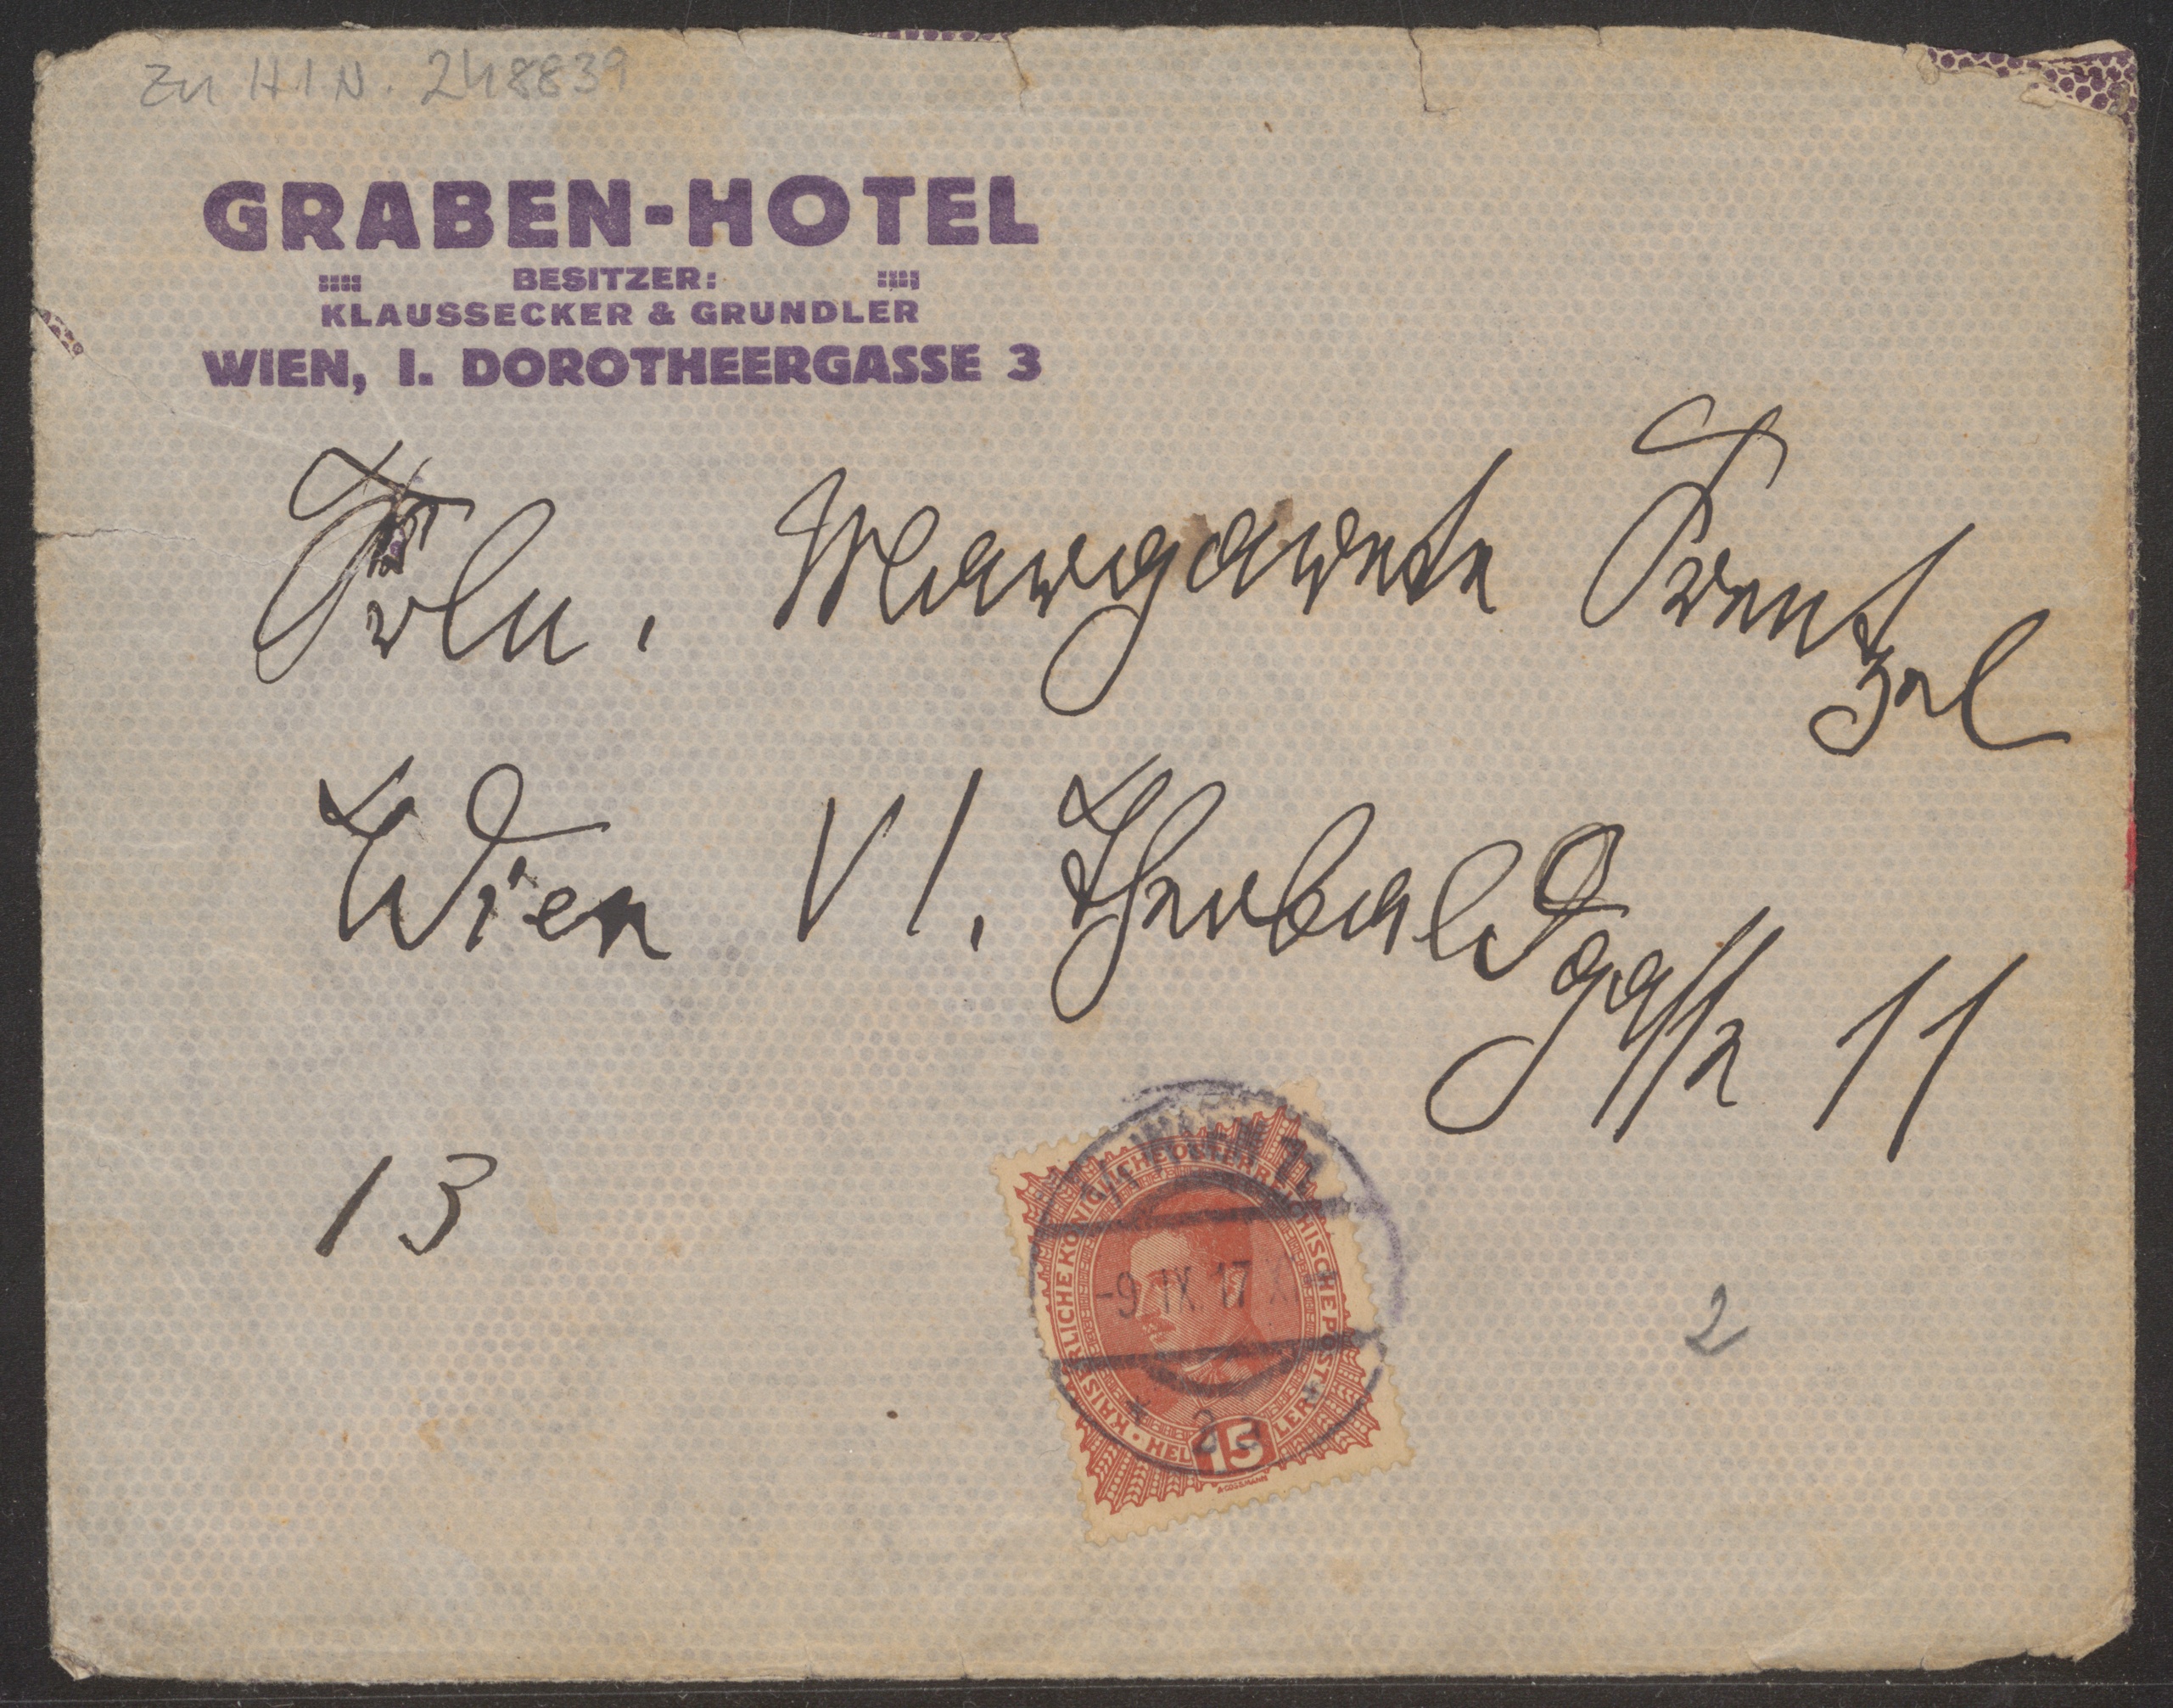 Zu H.I.N. 248839
GRABEN-HOTEL
BESITZER:
KLAUSSECKER & GRUNDLER
WIEN, I. DOROTHEERGASSE 3
Frln. Margarete Frentzel
Wien VI. Theobaldgasse 11
13
WIEN
-9.IX.17
KAISERLICHE KÖNIGLICHE ÖSTERREICHISCHE POST
HELLER
15
2